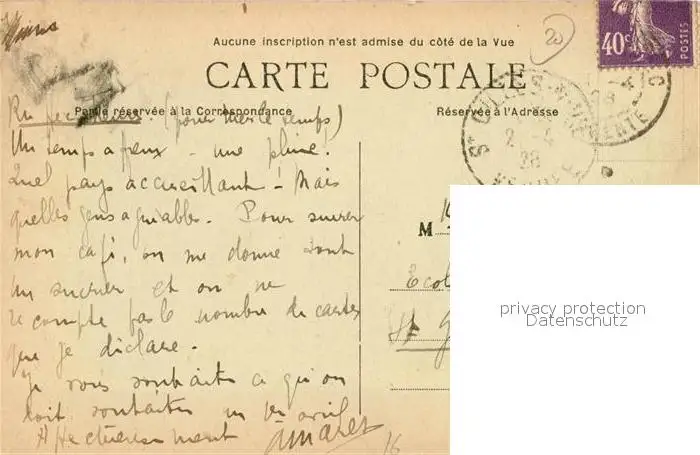 20
Aucune inscription n'est admise du côté de la Vue
CARTE POSTALE
40c
POSTES
Partie réservée à la Correspondance
Réservée à l'Adresse
(pour tuer le temps)
Un temps affreux - une pluie.
Quel pays accueillant - Mais
quelles gens agréables. Pour sucrer
mon café, on me donne tout
un sucrier et on ne
recompte pas le nombre de cartes
que je déclare.
Je vous souhaite ce qu'on
doit souhaiter un 1er avril
Affectueusement
M
Ecol
St G
privacy protection
Datenschutz
16